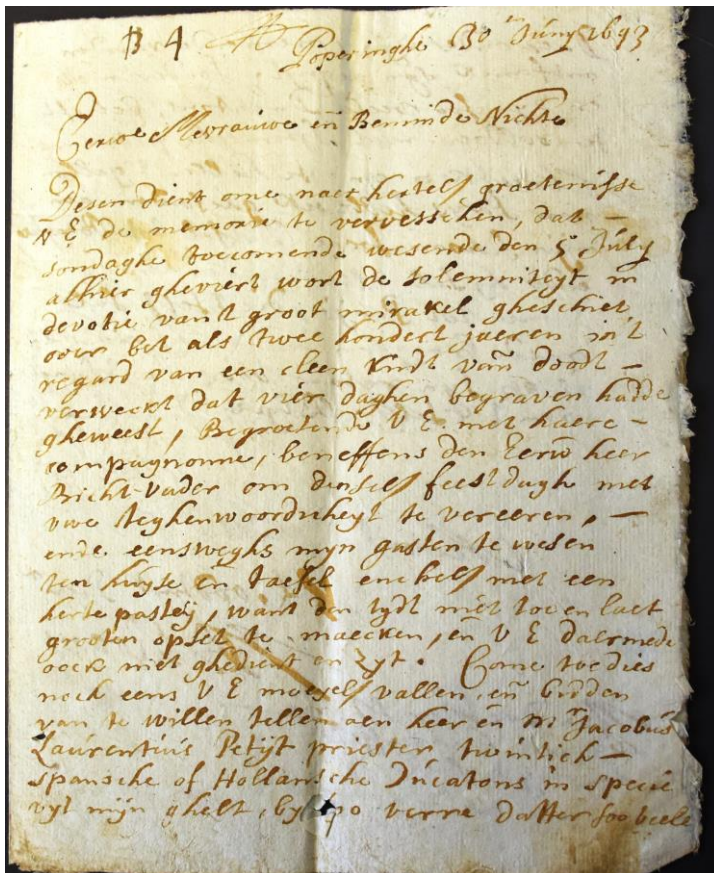 B 4 Poperinghe 30 Juny 1693
Eerwe Mevrauwe en Beminde Nichte
Desen dient ome naer hertel groetenisse
V E de memorie te vervesschen, dat -
sondaghe toecomende wesende den 5 July
alhier gheviert wort de solemniteyt in
devotie van't groot mirakel gheschiet
over bet als twee hondert jaeren in't
regard van een cleen kindt van doodt -
verweckt dat vier daghen begraven hadde
gheweest, Begroetende V E met haere -
compagnonne, beneffens den Eerw heer
Bicht-vader om dense feestdagh met
uwe teghenwoordicheyt te vereeren, -
ende eensweghs myn gasten te wesen
ten huyse en taefel enckel met een
herte pasteij, want den tydt niet toe en laet
grooten opset te maecken, en V E daermede
oock niet ghedient en zyt. Come toe dies
noch eens V E moeyel vallen, en bidden
van te willen tellen aen heer en mr Jacobus
Laurentius Petijt priester twintich -
spaensche of Hollansche Ducatons in specie
uyt mijn ghelt, by verre datter soo veele